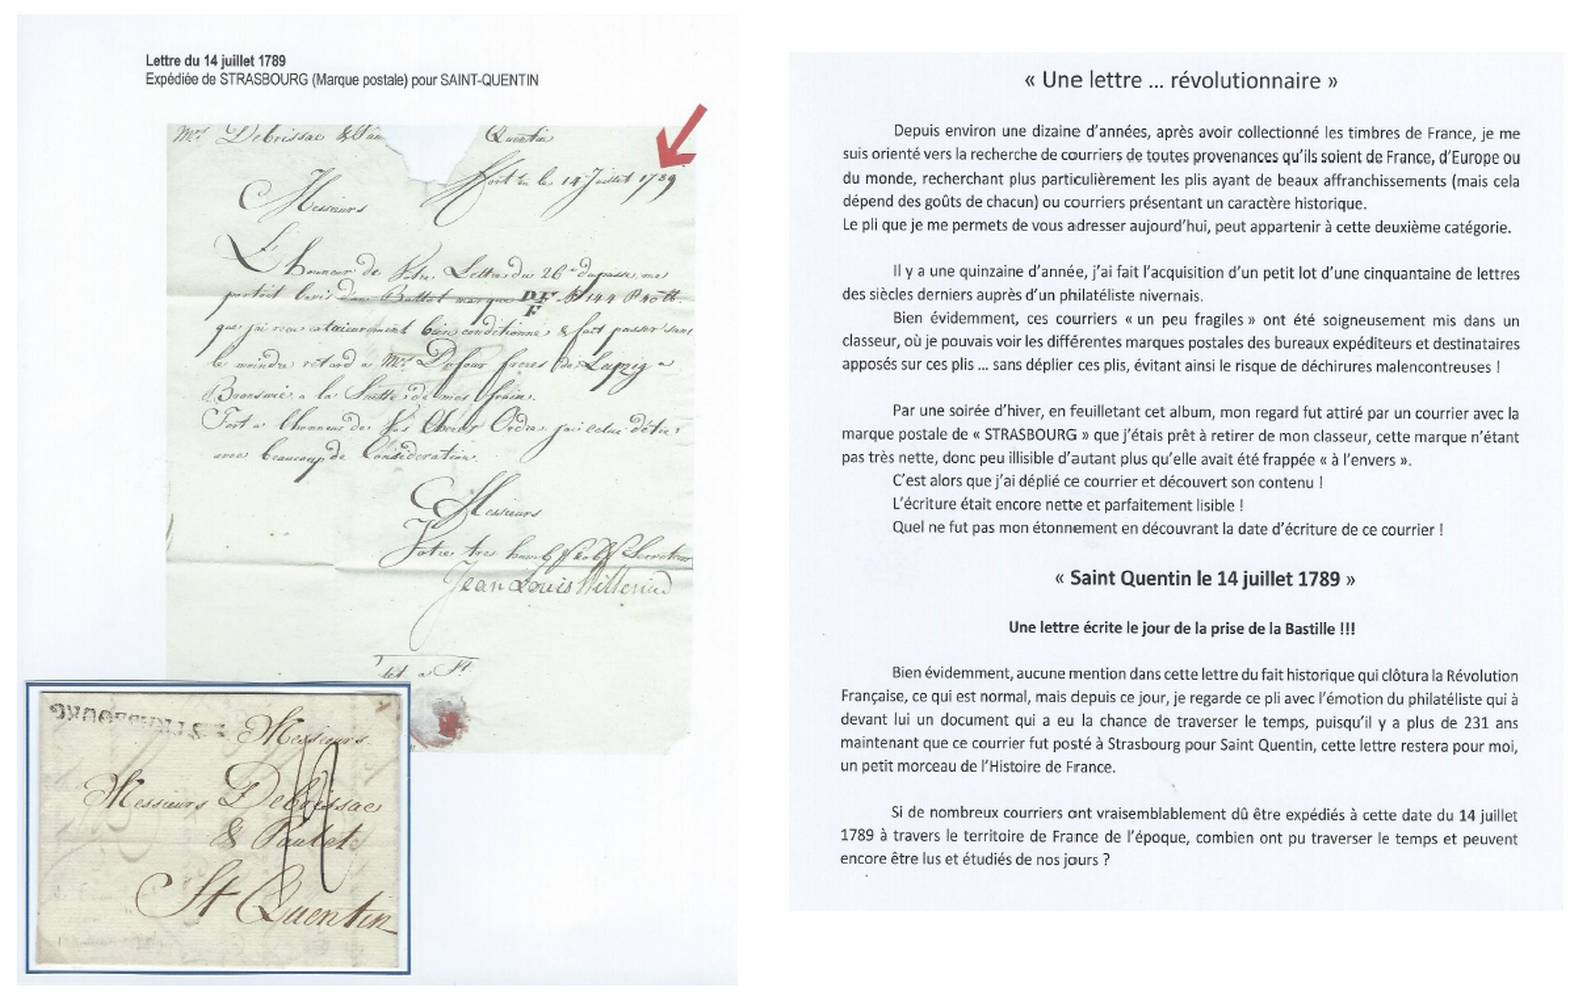 Lettre du 14 juillet 1789
Expédiée de STRASBOURG (Marque postale) pour SAINT-QUENTIN
Mrs Debrissac & Quentin
le 14 Juillet 1789
Messieurs
L'honneur de Votre Lettre du 26 du passé me
portoit lavis d'un Ballot marque DF F N 144
que jai recu exterieurement bien conditionné & fait passer sans
le moindre retard a Mrs Dufour freres de Leipzig a
Brunswic a la Suitte de mes frais.
Tout a lhonneur de Vos Ordres jai celui d'être
avec beaucoup de Consideration.
Messieurs
Votre tres humb Serviteur
Jean Louis
let a St.
STRASBOURG
Messieurs
Messieurs Debrissac
& Paulet
St Quentin
« Une lettre ... révolutionnaire »
Depuis environ une dizaine d'années, après avoir collectionné les timbres de France, je me
suis orienté vers la recherche de courriers de toutes provenances qu'ils soient de France, d'Europe ou
du monde, recherchant plus particulièrement les plis ayant de beaux affranchissements (mais cela
dépend des goûts de chacun) ou courriers présentant un caractère historique.
Le pli que je me permets de vous adresser aujourd'hui, peut appartenir à cette deuxième catégorie.
Il y a une quinzaine d'année, j'ai fait l'acquisition d'un petit lot d'une cinquantaine de lettres
des siècles derniers auprès d'un philatéliste nivernais.
Bien évidemment, ces courriers « un peu fragiles » ont été soigneusement mis dans un
classeur, où je pouvais voir les différentes marques postales des bureaux expéditeurs et destinataires
apposés sur ces plis ... sans déplier ces plis, évitant ainsi le risque de déchirures malencontreuses !
Par une soirée d'hiver, en feuilletant cet album, mon regard fut attiré par un courrier avec la
marque postale de « STRASBOURG » que j'étais prêt à retirer de mon classeur, cette marque n'étant
pas très nette, donc peu illisible d'autant plus qu'elle avait été frappée « à l'envers ».
C'est alors que j'ai déplié ce courrier et découvert son contenu !
L'écriture était encore nette et parfaitement lisible !
Quel ne fut pas mon étonnement en découvrant la date d'écriture de ce courrier !
« Saint Quentin le 14 juillet 1789 »
Une lettre écrite le jour de la prise de la Bastille !!!
Bien évidemment, aucune mention dans cette lettre du fait historique qui clôtura la Révolution
Française, ce qui est normal, mais depuis ce jour, je regarde ce pli avec l'émotion du philatéliste qui à
devant lui un document qui a eu la chance de traverser le temps, puisqu'il y a plus de 231 ans
maintenant que ce courrier fut posté à Strasbourg pour Saint Quentin, cette lettre restera pour moi,
un petit morceau de l'Histoire de France.
Si de nombreux courriers ont vraisemblablement dû être expédiés à cette date du 14 juillet
1789 à travers le territoire de France de l'époque, combien ont pu traverser le temps et peuvent
encore être lus et étudiés de nos jours ?